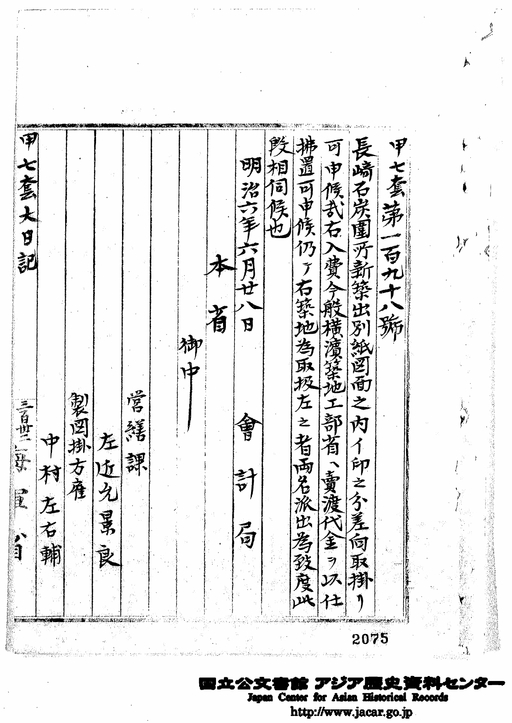 甲七套第一百九十八號
長崎石炭圍所新築出別紙図面之内イ印之分差向取掛リ
可申候哉右入費今般横濱築地工部省へ賣渡代金ヲ以仕
拂置可申候仍テ右築地為取扱左之者両名派出為致度此
段相伺候也
明治六年六月廿八日
會計局
本省
御中
営繕課
左近允景良
製図掛方雇
中村左右輔
甲七套大日記
海軍省
2075
国立公文書館 アジア歴史資料センター
Japan Center for Asian Historical Records
http://www.jacar.go.jp